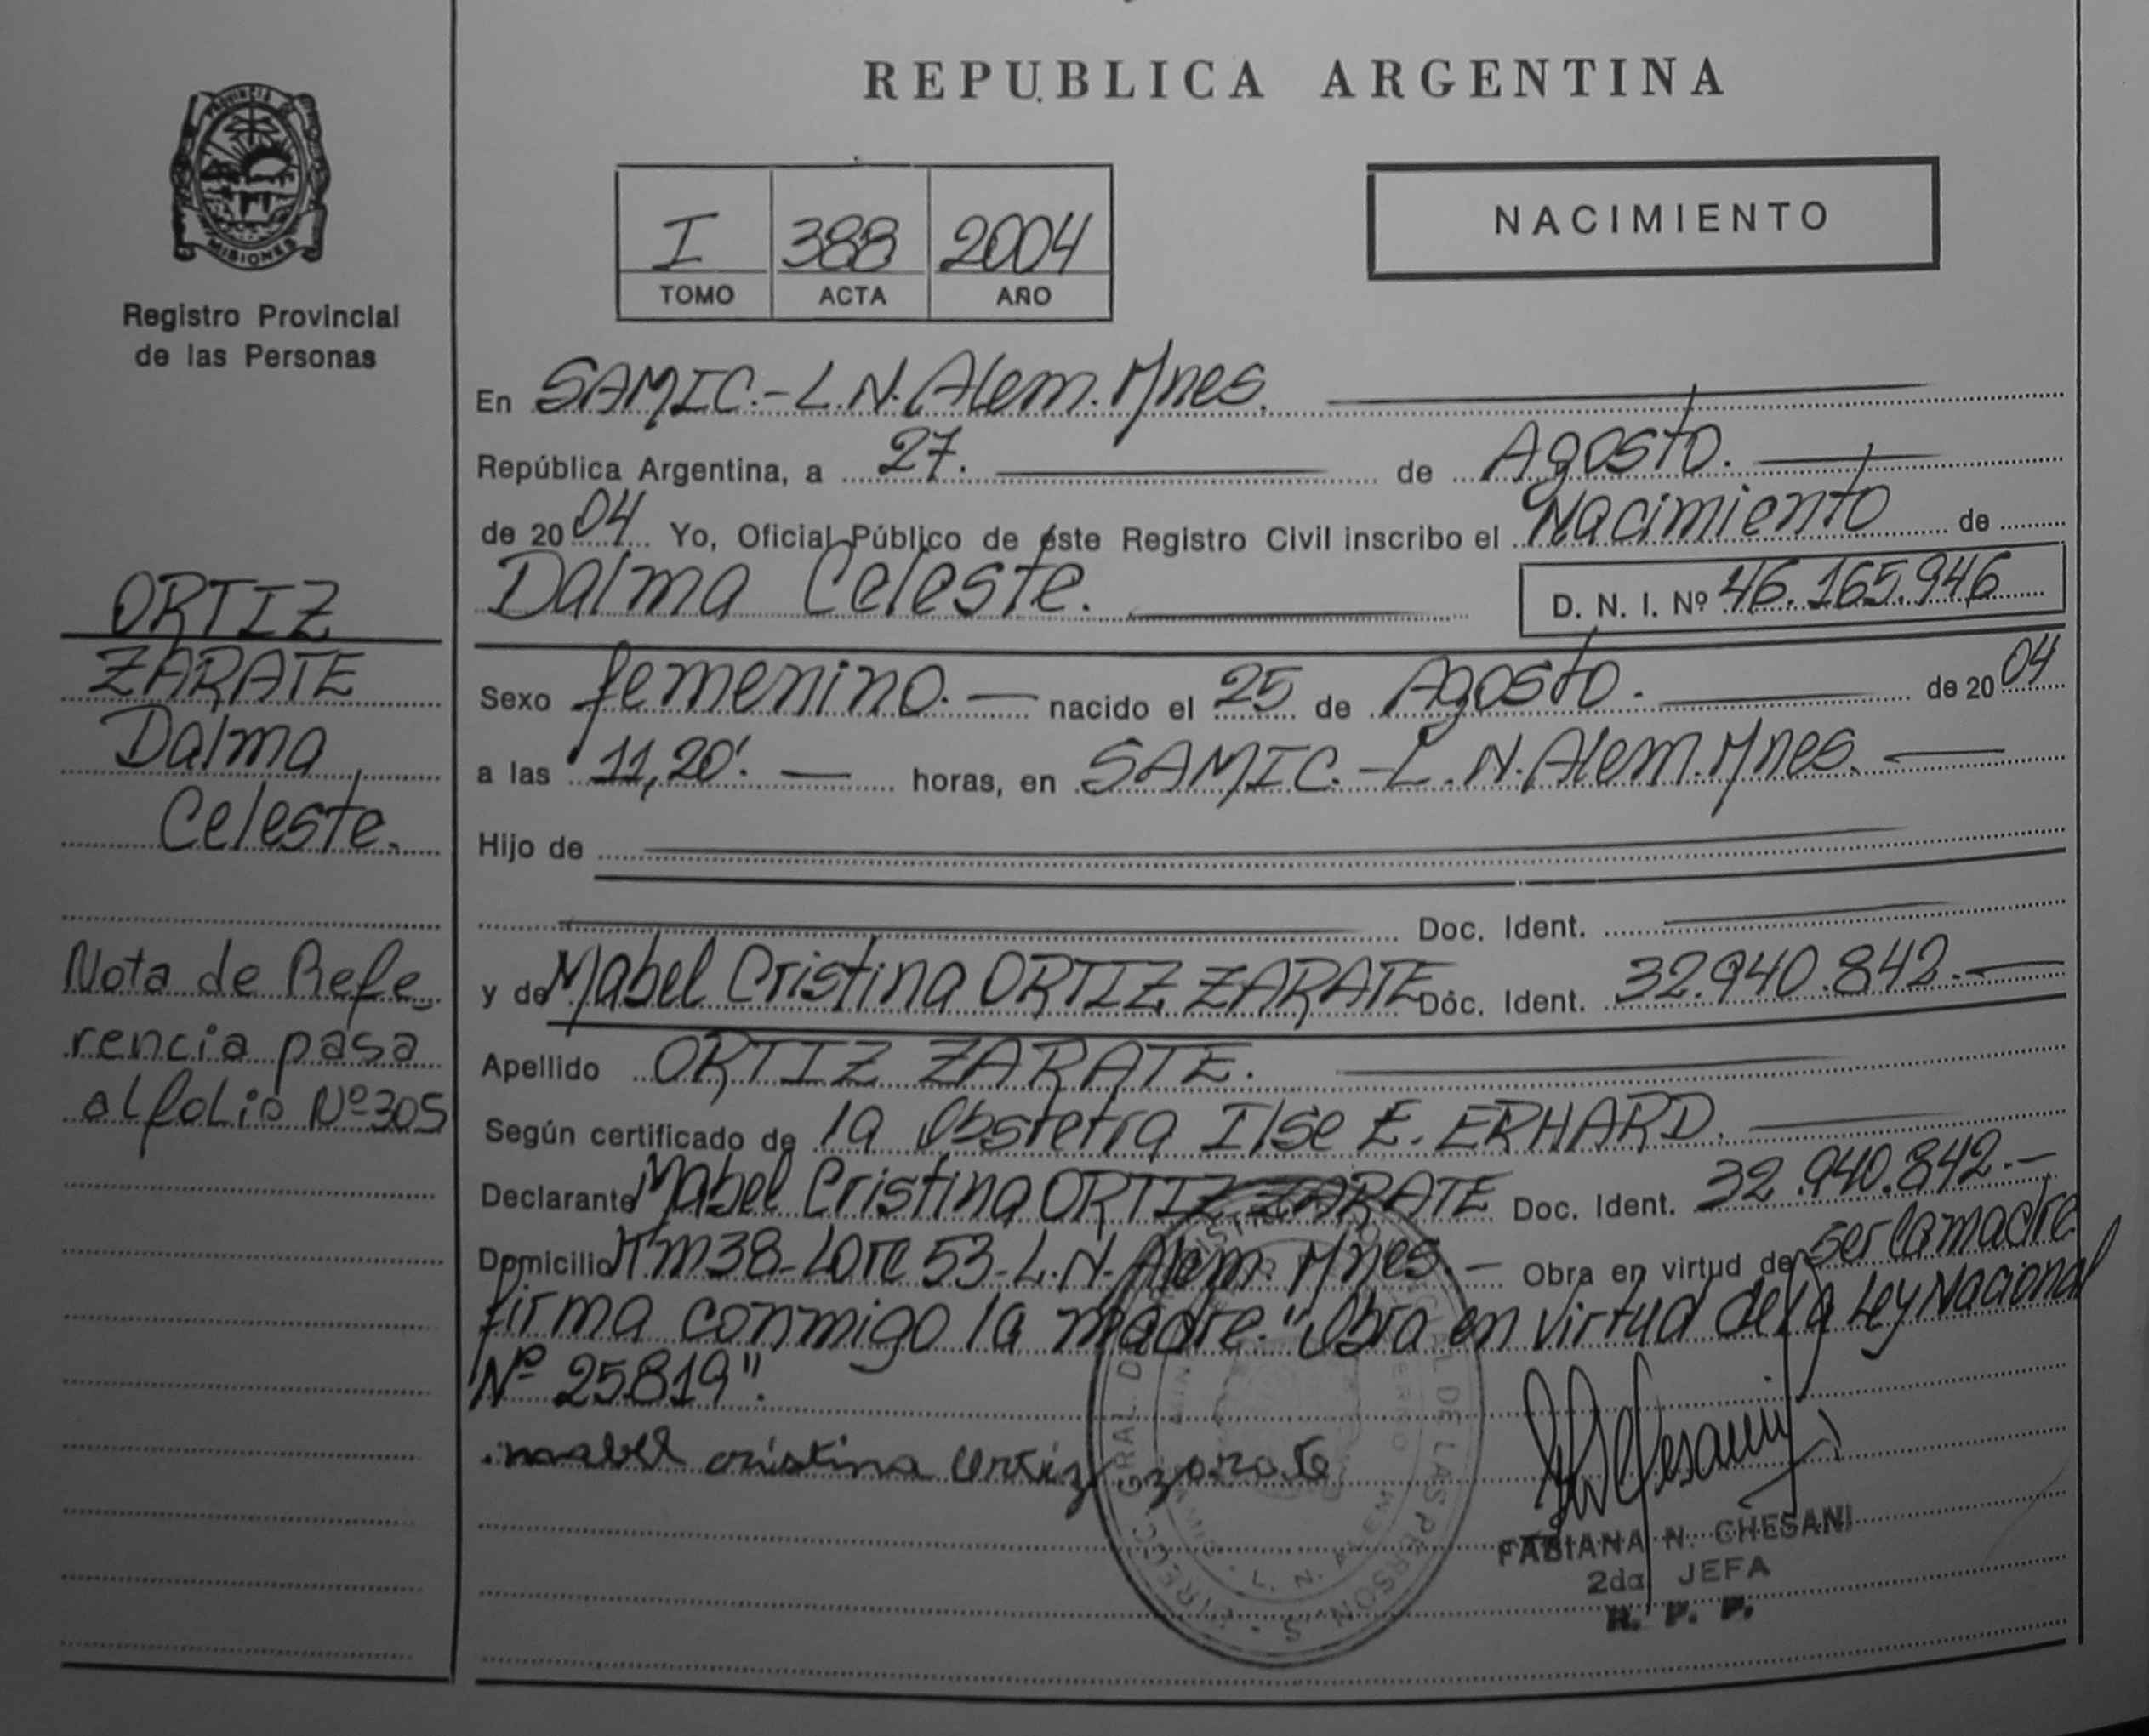 REPUBLICA ARGENTINA
PROVINCIA DE
MISIONES
Registro Provincial
de las Personas
I 388 2004
TOMO ACTA AÑO
NACIMIENTO
En SAMIC.-L.N.Alem.Mnes.
República Argentina, a 27. de Agosto.
de 2004 Yo, Oficial Público de éste Registro Civil inscribo el Nacimiento de
Dalma Celeste. D. N. I. Nº 46.165.946
ORTIZ
ZARATE
Dalma
Celeste.
Sexo femenino. nacido el 25 de Agosto. de 2004
a las 11,20'. horas, en SAMIC.-L.N.Alem.Mnes.
Hijo de
Doc. Ident.
y de Mabel Cristina ORTIZ ZARATE Doc. Ident. 32.940.842.-
Nota de Refe-
rencia pasa
al folio Nº 305
Apellido ORTIZ ZARATE.
Según certificado de la Obstetra Ilse E. ERHARD.
Declarante Mabel Cristina ORTIZ ZARATE Doc. Ident. 32.940.842.-
Domicilio Km38-Lote 53-L.N.Alem. Mnes.- Obra en virtud de ser la madre
firma conmigo la madre."Obra en virtud de la Ley Nacional
Nº 25.819".
mabel cristina Ortiz zarate
FABIANA N. CHESANI
2da JEFA
R. P. P.
DIRECC. GRAL. DE LAS PERSONAS
L. N. ALEM